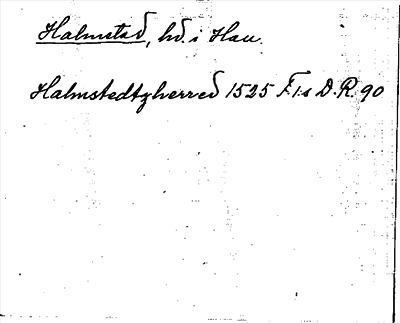 Halmstad, hd. i Hall.
Halmstedtzherred 1525 F. I:s D. R. 90